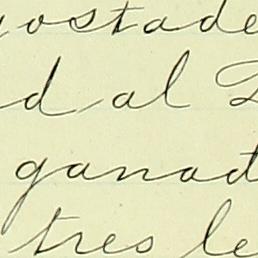 ostade
d al
ganad
tres le